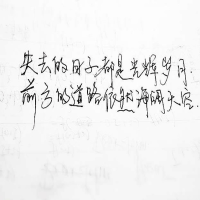 失去的日子都是光辉岁月.
前方的道路依然海阔天空.